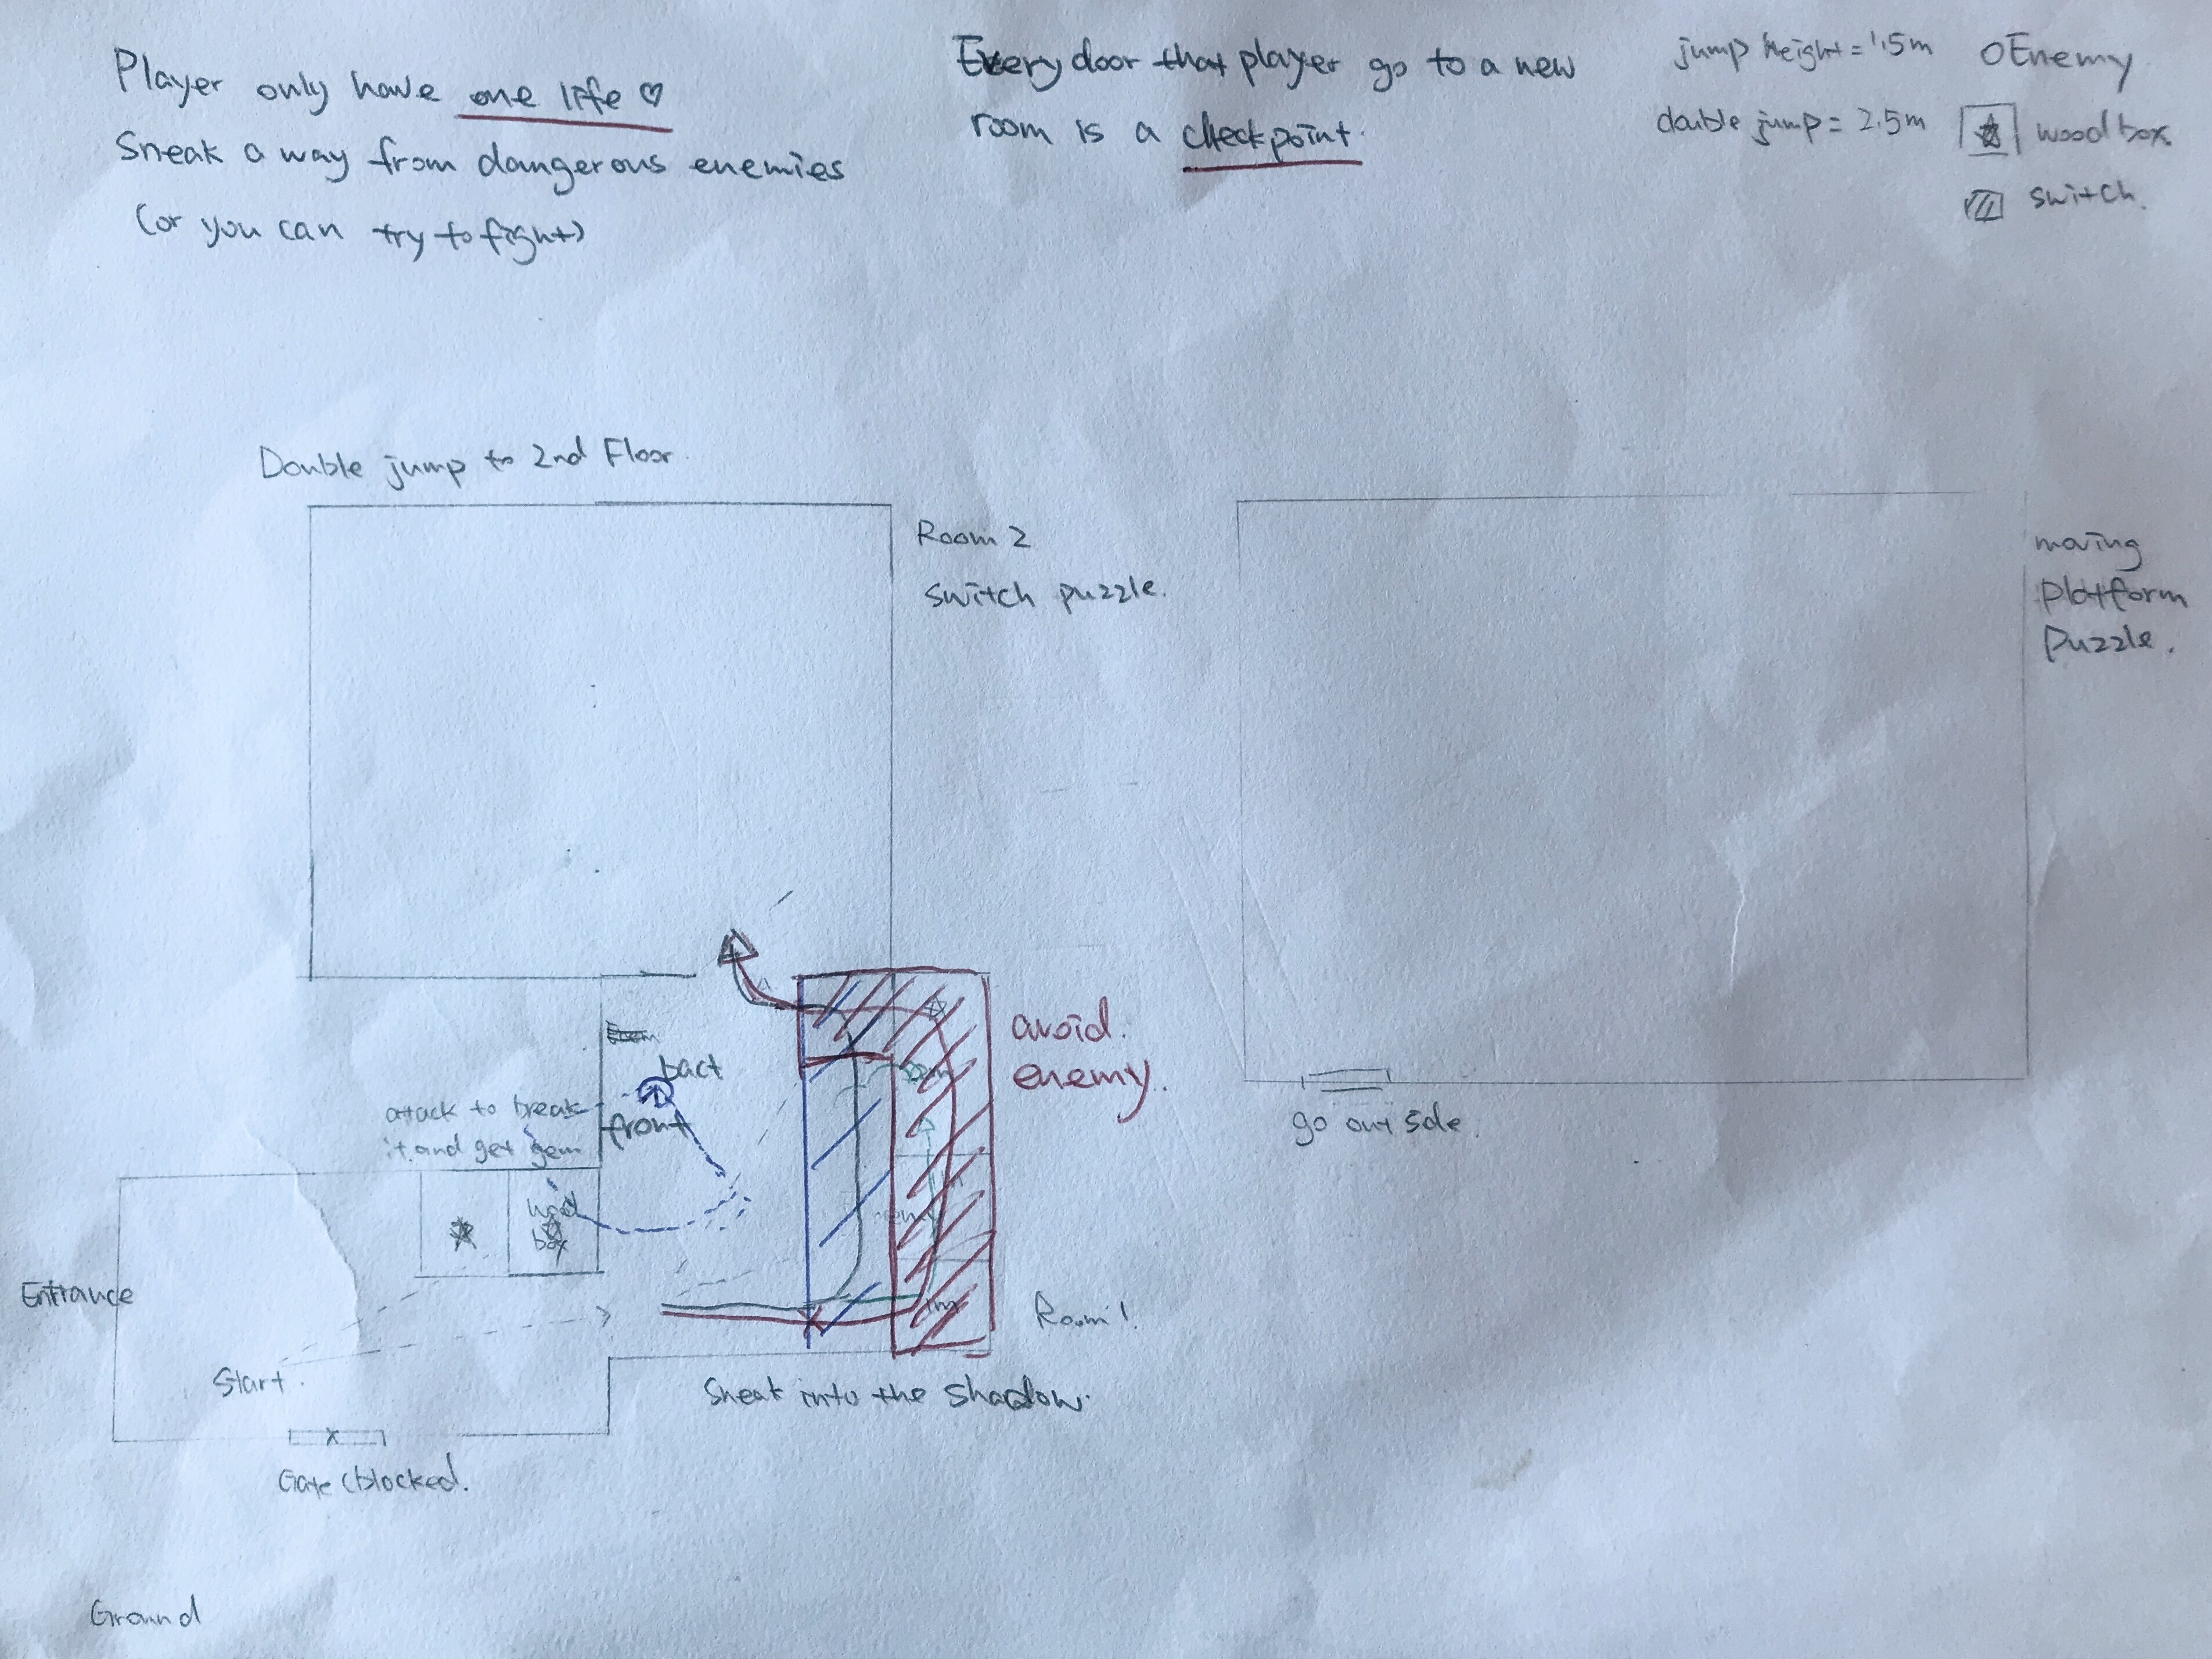 Player only have one life ♡
Sneak a way from dangerous enemies
(or you can try to fight)
Every door that player go to a new
room is a checkpoint.
jump height = 1.5m
double jump = 2.5m
Enemy
wood box
switch.
Double jump to 2nd Floor.
Room 2
switch puzzle.
moving
Platform
Puzzle.
avoid.
enemy.
go out side.
back
front
attack to break
it and get gem
wood
box
Entrance
1m
Room 1.
Start.
Sneak into the shadow.
Gate (blocked.
Ground